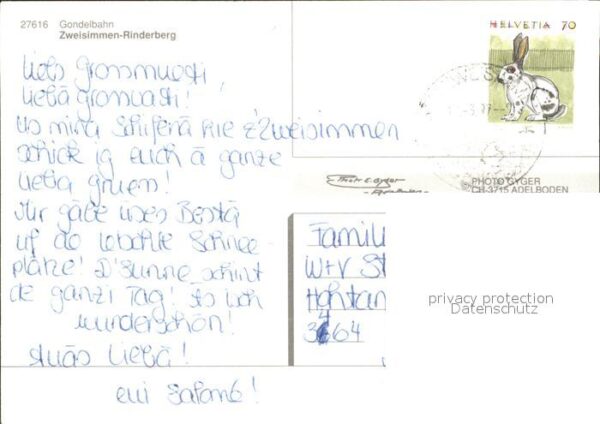 27616 Gondelbahn
Zweisimmen-Rinderberg
HELVETIA 70
Liebs Grossmuetti,
Liebä Grossvatti!
Us minä Schiferiä hie z'Zweisimmen
schick ig euch ä ganze
lieba gruess!
Mir gäbe uses Bestä
uf de Schnee
plätze! D'Sunne schint
de ganzi Tag!
wunderschön!
Liebä!
eui
PHOTO GYGER
CH-3715 ADELBODEN
Famili
W+V St
3464
privacy protection
Datenschutz